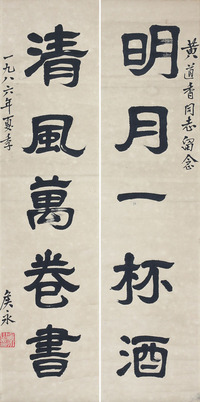 黄道香同志留念
明月一杯酒
清風萬卷書
一九八六年夏季
侯永